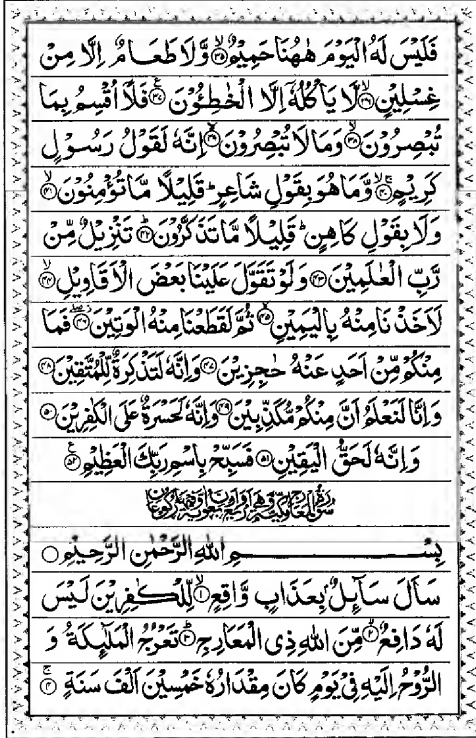 فَلَيْسَ لَهُ الْيَوْمَ هٰهُنَا حَمِيْمٌ ۙ‏﴿۳۵﴾ وَّلَا طَعَامٌ اِلَّا مِنْ
غِسْلِيْنٍ ۙ‏﴿۳۶﴾ لَّا يَاْكُلُهٗۤ اِلَّا الْخٰطِـُٔوْنَ ﴿۳۷﴾ فَلَاۤ اُقْسِمُ بِمَا
تُبْصِرُوْنَ ۙ‏﴿۳۸﴾ وَمَا لَا تُبْصِرُوْنَ ۙ‏﴿۳۹﴾ اِنَّهٗ لَقَوْلُ رَسُوْلٍ
كَرِيْمٍ ۙ‏﴿۴۰﴾ وَّمَا هُوَ بِقَوْلِ شَاعِرٍ ؕ قَلِيْلًا مَّا تُؤْمِنُوْنَ ۙ‏﴿۴۱﴾
وَلَا بِقَوْلِ كَاهِنٍ ؕ قَلِيْلًا مَّا تَذَكَّرُوْنَ ؕ‏﴿۴۲﴾ تَنْزِيْلٌ مِّنْ
رَّبِّ الْعٰلَمِيْنَ ﴿۴۳﴾ وَلَوْ تَقَوَّلَ عَلَيْنَا بَعْضَ الْاَقَاوِيْلِ ۙ‏﴿۴۴﴾
لَاَخَذْنَا مِنْهُ بِالْيَمِيْنِ ۙ‏﴿۴۵﴾ ثُمَّ لَقَطَعْنَا مِنْهُ الْوَتِيْنَ ﴿۴۶﴾ فَمَا
مِنْكُمْ مِّنْ اَحَدٍ عَنْهُ حٰجِزِيْنَ ﴿۴۷﴾ وَاِنَّهٗ لَتَذْكِرَةٌ لِّلْمُتَّقِيْنَ ﴿۴۸﴾
وَاِنَّا لَنَعْلَمُ اَنَّ مِنْكُمْ مُّكَذِّبِيْنَ ﴿۴۹﴾ وَاِنَّهٗ لَحَسْرَةٌ عَلَى الْكٰفِرِيْنَ ﴿۵۰﴾
وَاِنَّهٗ لَحَقُّ الْيَقِيْنِ ﴿۵۱﴾ فَسَبِّحْ بِاسْمِ رَبِّكَ الْعَظِيْمِ ﴿۵۲﴾
بِسْمِ اللهِ الرَّحْمٰنِ الرَّحِيْمِ
سَاَلَ سَآئِلٌۢ بِعَذَابٍ وَّاقِعٍ ۙ‏﴿۱﴾ لِّلْكٰفِرِيْنَ لَيْسَ
لَهٗ دَافِعٌ ۙ‏﴿۲﴾ مِّنَ اللهِ ذِى الْمَعَارِجِ ؕ‏﴿۳﴾ تَعْرُجُ الْمَلٰٓئِكَةُ وَ
الرُّوْحُ اِلَيْهِ فِىْ يَوْمٍ كَانَ مِقْدَارُهٗ خَمْسِيْنَ اَلْفَ سَنَةٍ ۚ‏﴿۴﴾